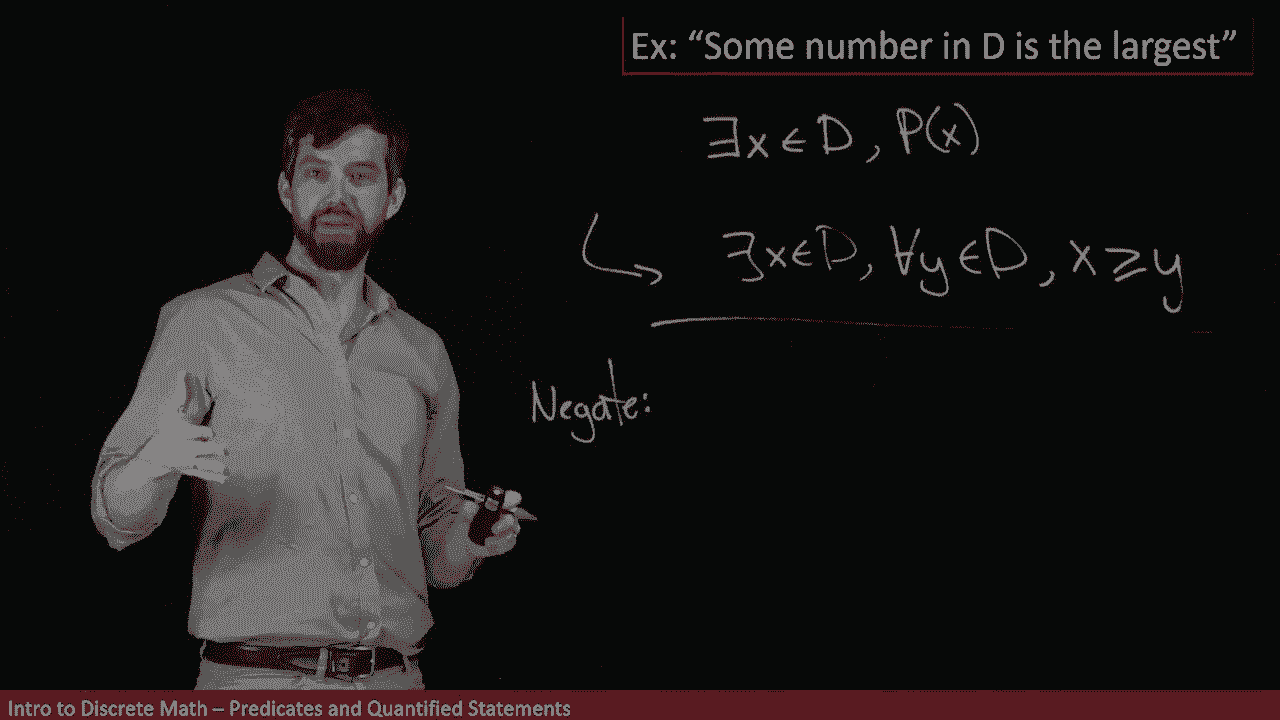 Ex: “Some number in D is the largest”
∃x ∈ D, P(x)
∃x ∈ D, ∀y ∈ D, x ⩾ y
Negate:
Intro to Discrete Math – Predicates and Quantified Statements